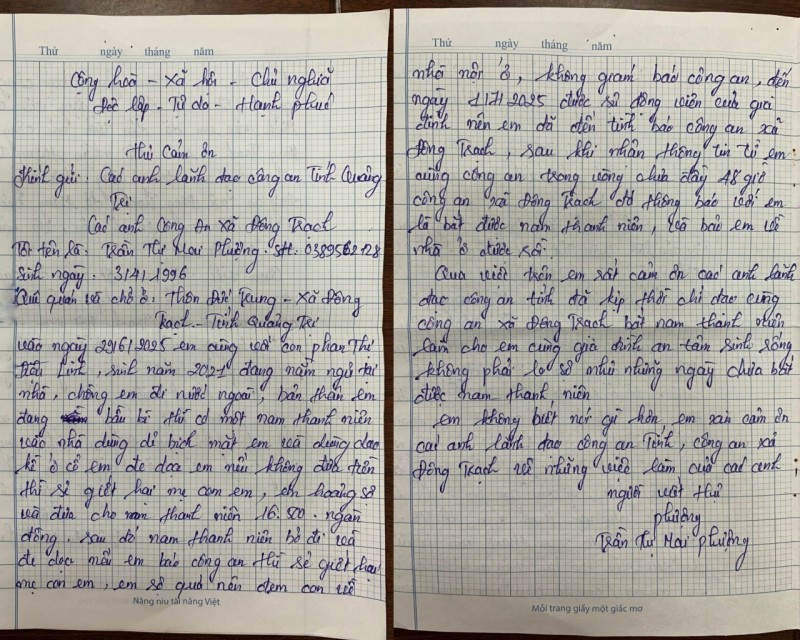 Thứ ngày tháng năm
Cộng hoà - Xã hội - Chủ nghĩa
Độc lập - Tự do - Hạnh phúc
Thư Cảm ơn
Kính gửi: Các anh lãnh đạo công an Tỉnh Quảng
Trị
Các anh Công An xã Đông Trạch
Tôi tên là: Trần Thị Mai Phường. sđt.
Sinh ngày. 3/4/1996
Quê quán và chổ ở: Thôn Đức Trung - Xã Đông
Trạch - Tỉnh Quảng Trị
vào ngày 29/6/2025 em cùng với con phan Thị
Linh, sinh năm 2021 đang nằm ngủ tại
nhà, chồng em đi nước ngoài, bản thân em
đang bầu bì thì có một nam thanh niên
vào nhà dùng để bịch mặt em và dùng dao
kề ở cổ em đe doạ em nếu không đưa tiền
thì sẽ giết hai mẹ con em, em hoảng sợ
và đưa cho nam thanh niên ngàn
đồng. sau đó nam thanh niên bỏ đi và
đe doạ nếu em báo công an thì sẽ giết hai
mẹ con em, em sợ quá nên đem con về
Nâng niu tài năng Việt
Thứ ngày tháng năm
nhà nội ở, không giam báo công an, đến
ngày 1/7/2025 được sự động viên của gia
đình nên em đã đến trình báo công an xã
Đông Trạch, sau khi nhận thông tin từ em
cùng công an trong vòng chưa đầy 48 giờ
công an xã Đông Trạch đã thông báo với em
là bắt được nam thanh niên, và bảo em về
nhà ở được rồi.
Qua việc trên em rất cảm ơn các anh lãnh
đạo công an tỉnh đã kịp thời chỉ đạo cùng
công an xã Đông Trạch bắt nam thanh niên
làm cho em cùng gia đình an tâm sinh sống
không phải lo sợ như những ngày chưa bắt
được nam thanh niên
em không biết nói gì hơn, em xin cảm ơn
các anh lãnh đạo công an Tỉnh, công an xã
Đông Trạch về những việc làm của các anh
người viết thư
phường
Trần Thị Mai Phường
Mỗi trang giấy một giấc mơ